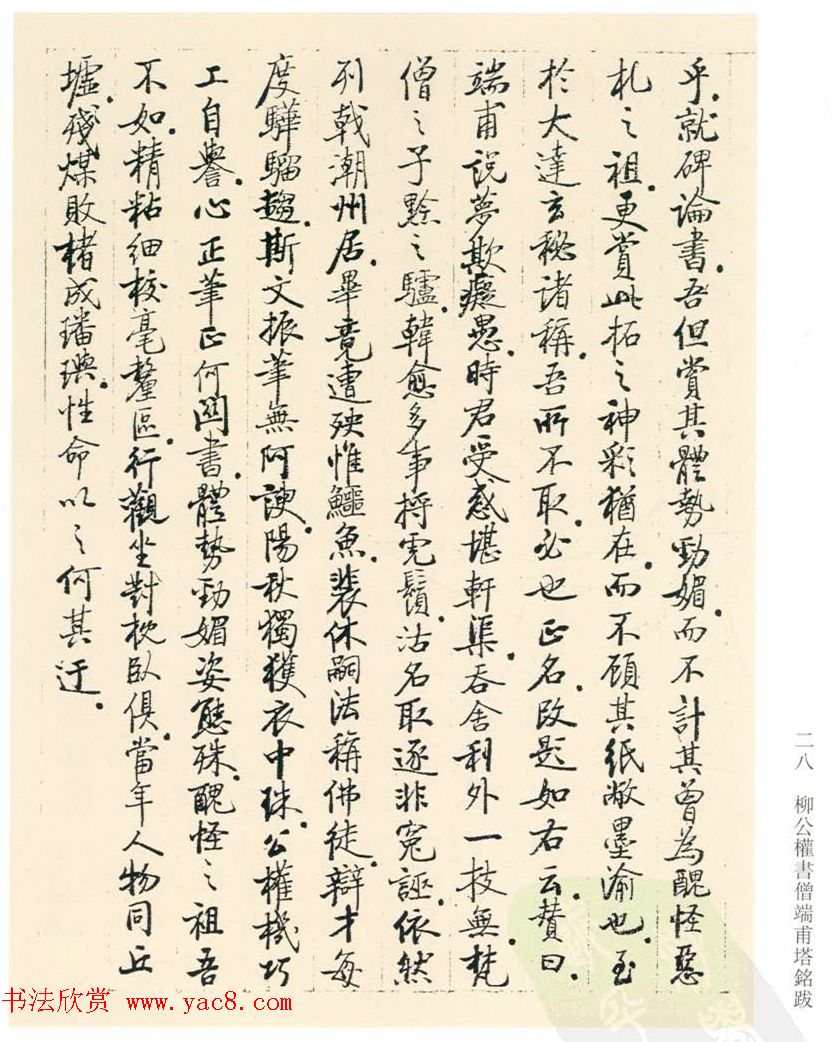 乎。就碑論書。吾但賞其體勢勁媚。而不計其曾為醜怪惡
札之祖。更賞此拓之神彩猶在。而不顧其紙敝墨渝也。至
於大達玄秘諸稱。吾所不取。必也正名。改題如右云。贊曰。
端甫說夢欺癡愚。時君受惑堪軒渠。吞舍利外一技無。梵
僧之子黔之驢。韓愈多事捋虎鬚。沽名取逐非冤誣。依然
列戟潮州居。畢竟遭殃惟鱷魚。裴休嗣法稱佛徒。辯才每
度驊騮趨。斯文振筆無阿諛。陽秋獨獲衣中珠。公權機巧
工自譽。心正筆正何關書。體勢勁媚姿態殊。醜怪之祖吾
不如。精粘細校毫釐區。行觀坐對枕臥俱。當年人物同丘
墟。殘煤敗楮成璠璵。性命以之何其迂。
二八　柳公權書僧端甫塔銘跋
书法欣赏 www.yac8.com